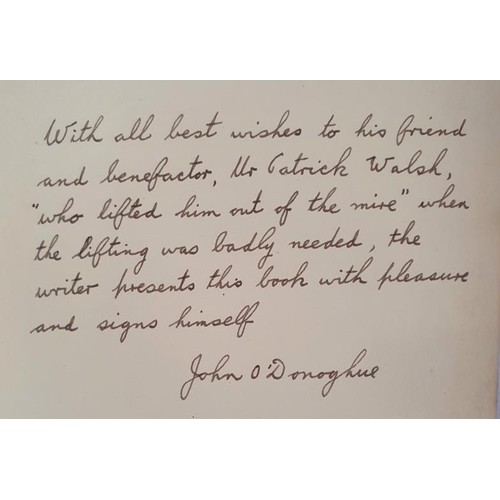 With all best wishes to his friend
and benefactor, Mr Patrick Walsh,
"who lifted him out of the mire" when
the lifting was badly needed, the
writer presents this book with pleasure
and signs himself
John O'Donoghue